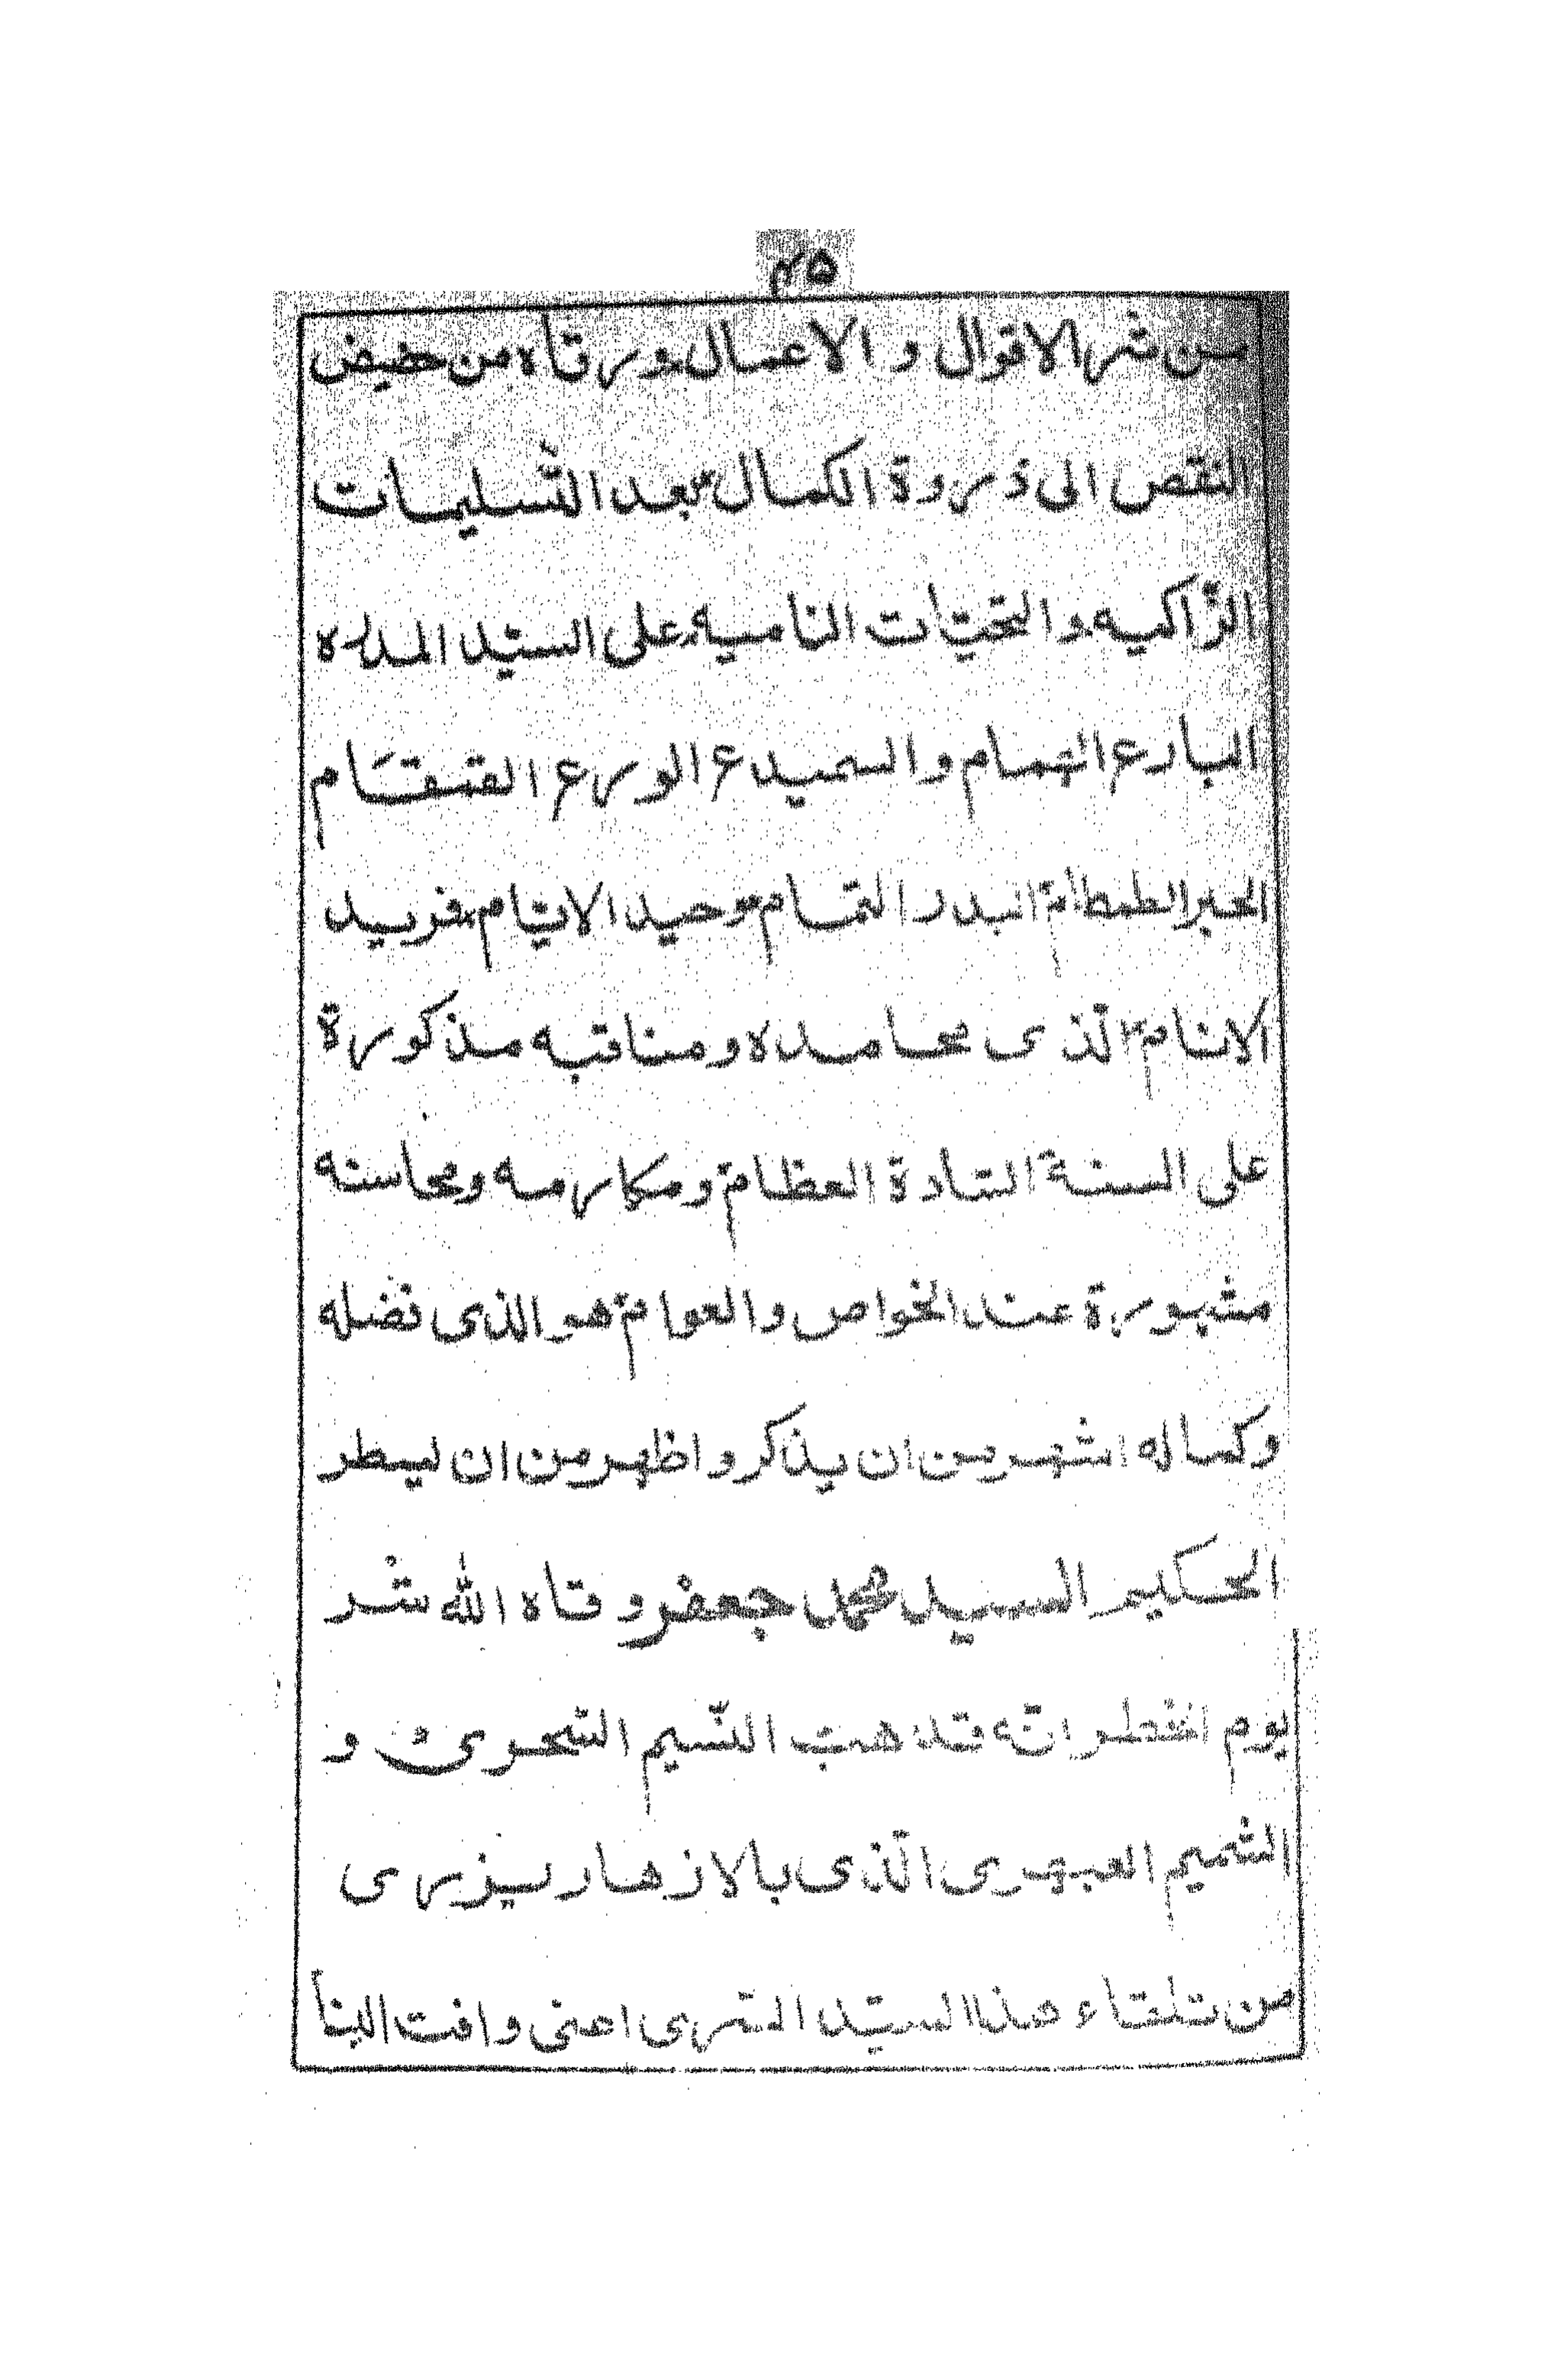 ٤٥
من شر الاقوال و الاعمال ورقاه من حضيض
النقص الى ذروة الكمال بعد التّسليمات
الزّاكيه والتحيّات الناميه على السيّد المدره
البارع الهمام والسميدع الورع القمقَام
الحبر الطمطام البدر التمام وحيد الايام فريد
الانام الّذى محامده ومناقبه مذكورة
على السنة السّادة العظام ومكارمه ومحاسنه
مشهورة عند الخواص والعوام هو الذى فضله
وكماله اشهر من ان يذكر واظهر من ان يسطر
الحكيم السيد محمد جعفر وقاه الله شر
يوم اغطر انّه قد هبّ النّسيم السّحرى و
الشّميم العبهرى الّذى بالازهار يزرى
من تلقاء هذا السيّد السّرى اعنى وافت الينا